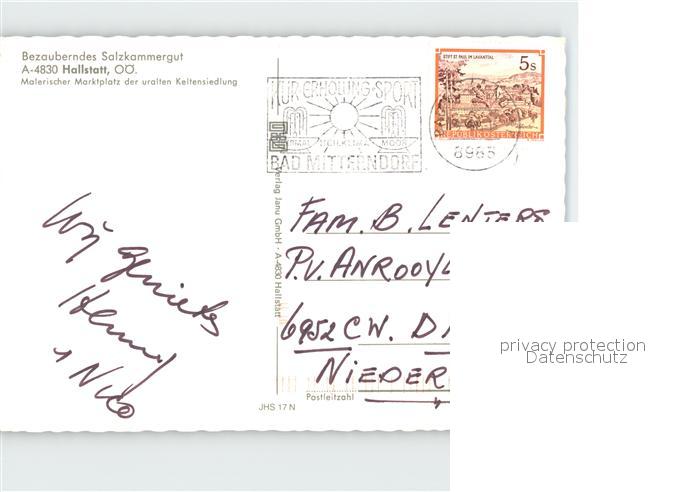 Bezauberndes Salzkammergut
A-4830 Hallstatt, OÖ.
Malerischer Marktplatz der uralten Keltensiedlung
STIFT ST. PAUL IM LAVANTTAL
5s
REPUBLIK ÖSTERREICH
KUR·ERHOLUNG·SPORT
HEILKLIMA MOOR
BAD MITTERNDORF
8983
Verlag Janu GmbH · A-4830 Hallstatt
Wij
genieten
Henny
+ Nico
FAM. B. LENTERS
P.V. ANROOYL
6952 CW. D
NIEDER
Postleitzahl
JHS 17 N
privacy protection
Datenschutz